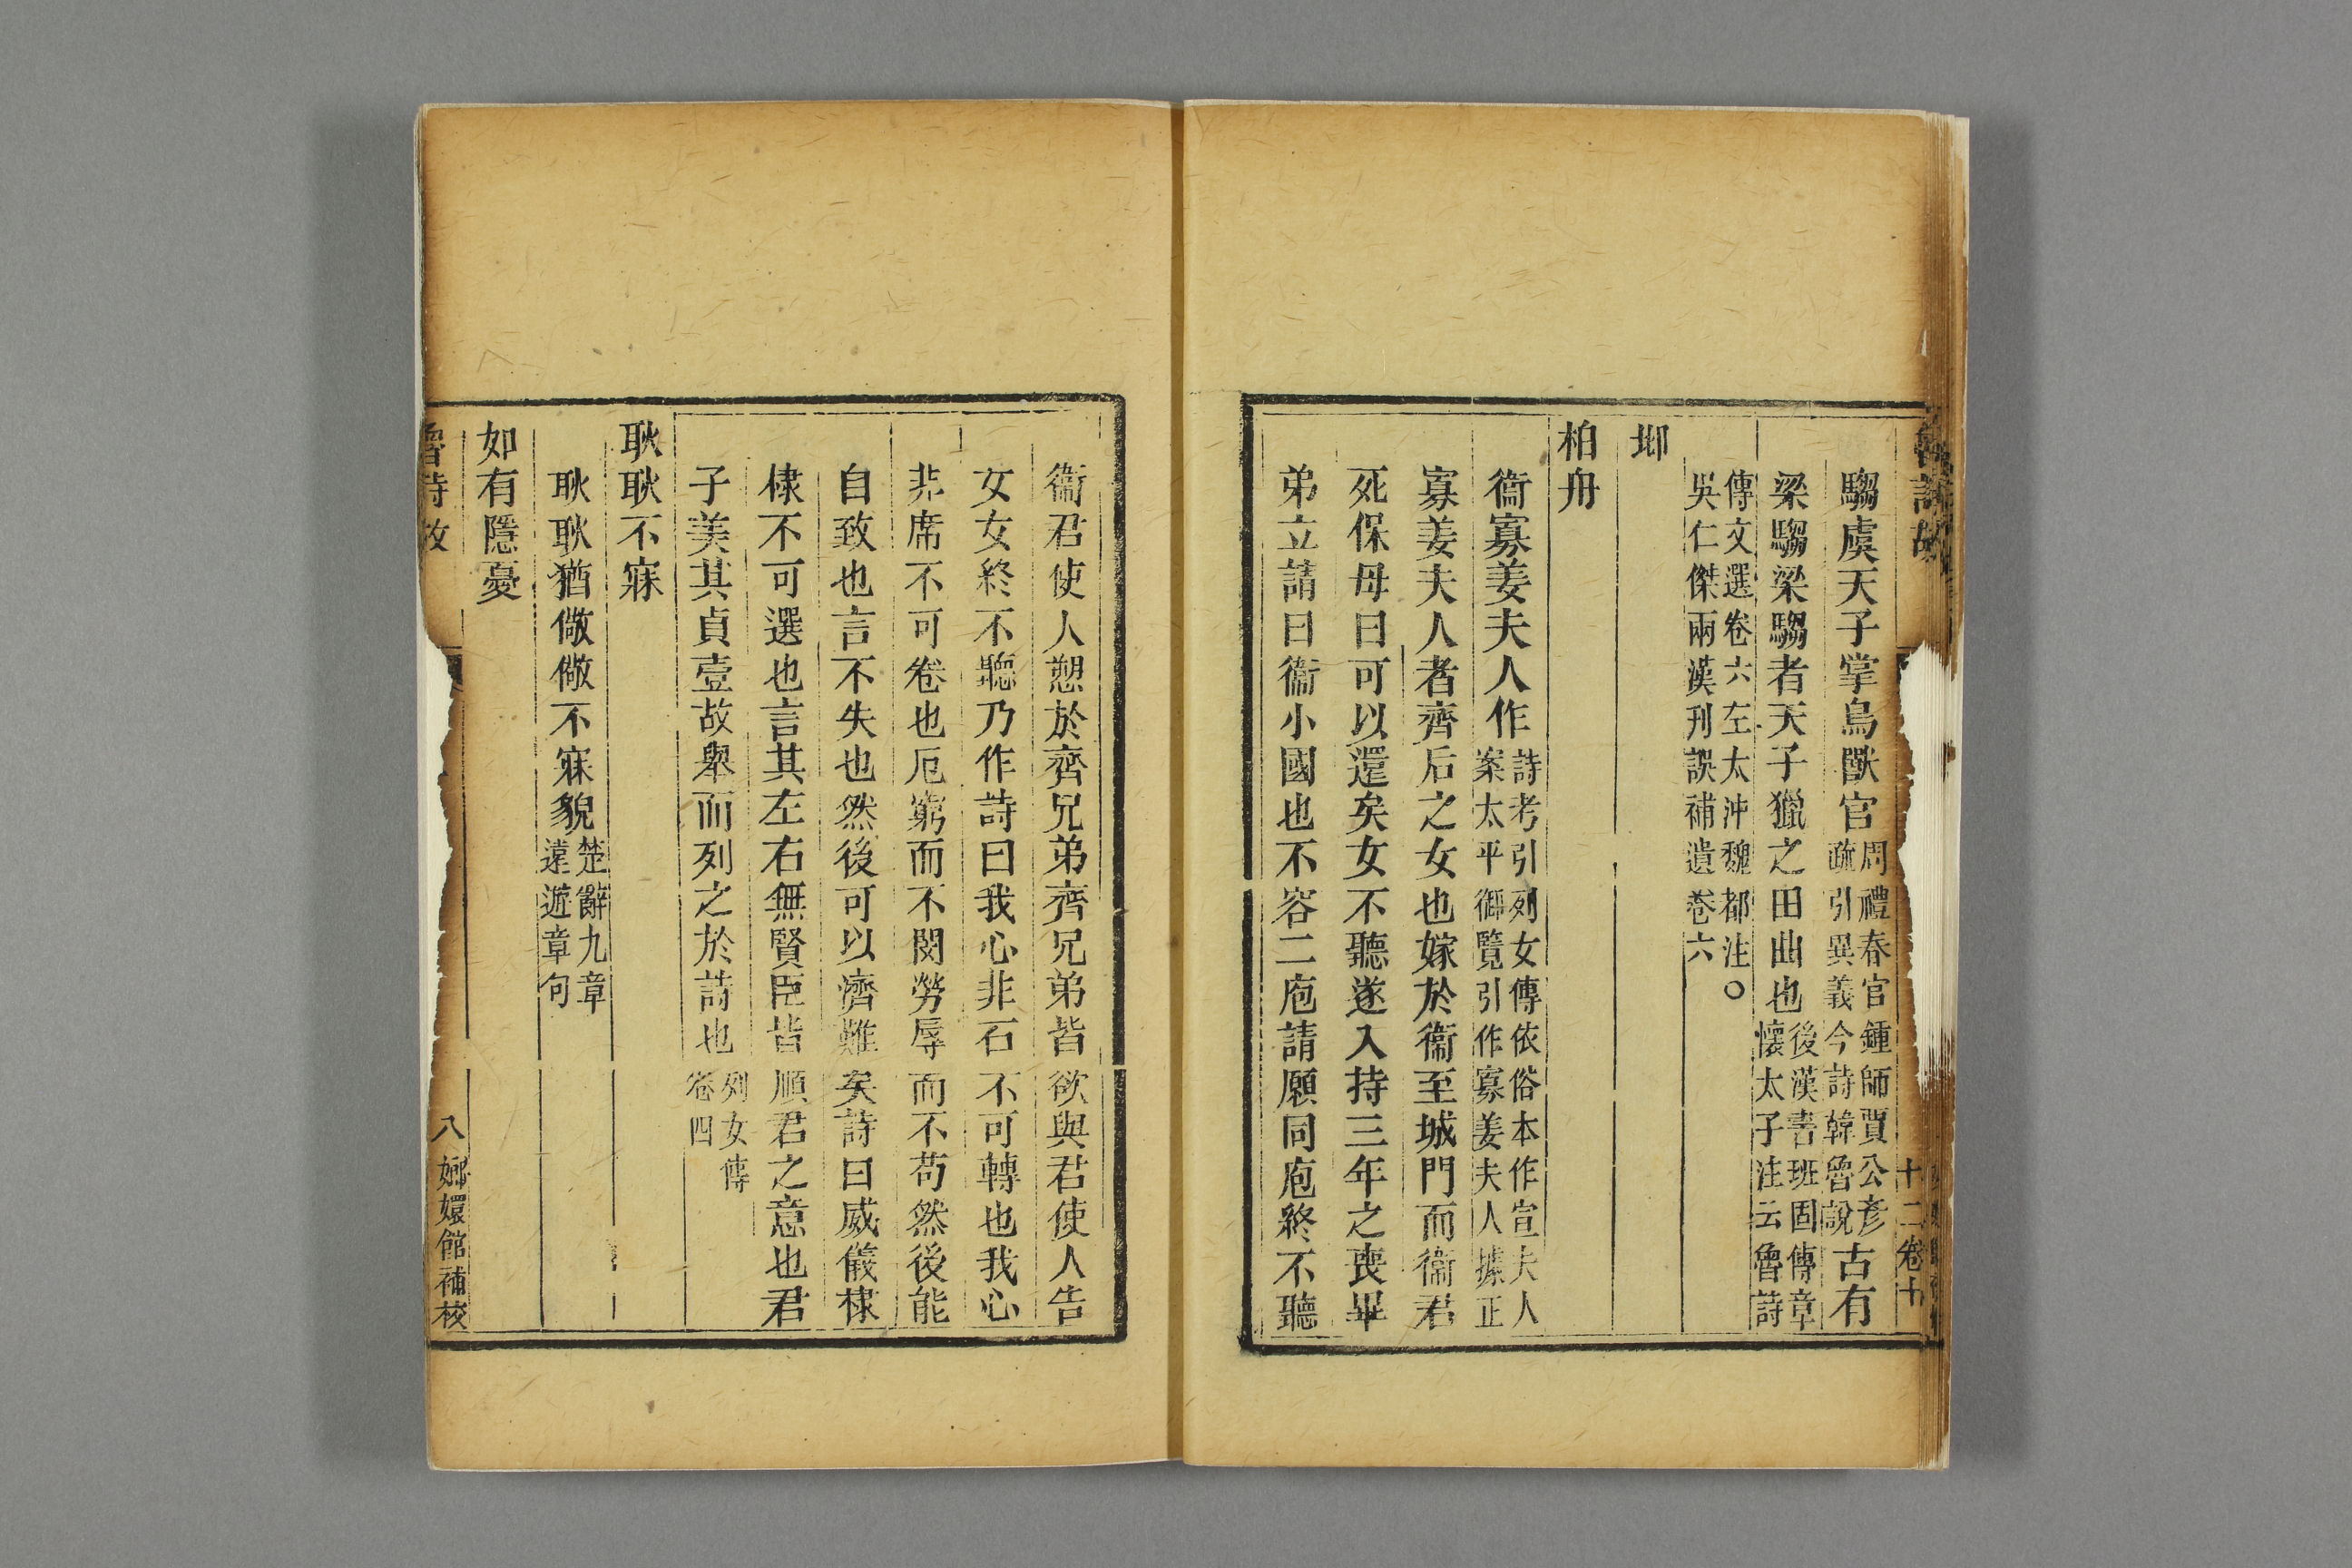 騶虞天子掌鳥獸官周禮春官鍾師賈公彥疏引異義今詩韓魯說古有
梁騶梁騶者天子獵之田曲也後漢書班固傳章懷太子注云魯詩
傳文選卷六左太沖魏都注○吳仁傑兩漢刊誤補遺卷六
邶
柏舟
衞寡姜夫人作詩考引列女傳依俗本作宣夫人案太平御覽引作寡姜夫人據正
寡姜夫人者齊后之女也嫁於衞至城門而衞君
死保母曰可以還矣女不聽遂入持三年之喪畢
弟立請曰衞小國也不容二庖請願同庖終不聽
衞君使人愬於齊兄弟齊兄弟皆欲與君使人告
女女終不聽乃作詩曰我心非石不可轉也我心
非席不可卷也厄窮而不閔勞辱而不苟然後能
自致也言不失也然後可以濟難矣詩曰威儀棣
棣不可選也言其左右無賢臣皆順君之意也君
子美其貞壹故舉而列之於詩也列女傳卷四
耿耿不寐
耿耿猶儆儆不寐貌楚辭九章遠遊章句
如有隱憂
魯詩故
八
嫏嬛館補校